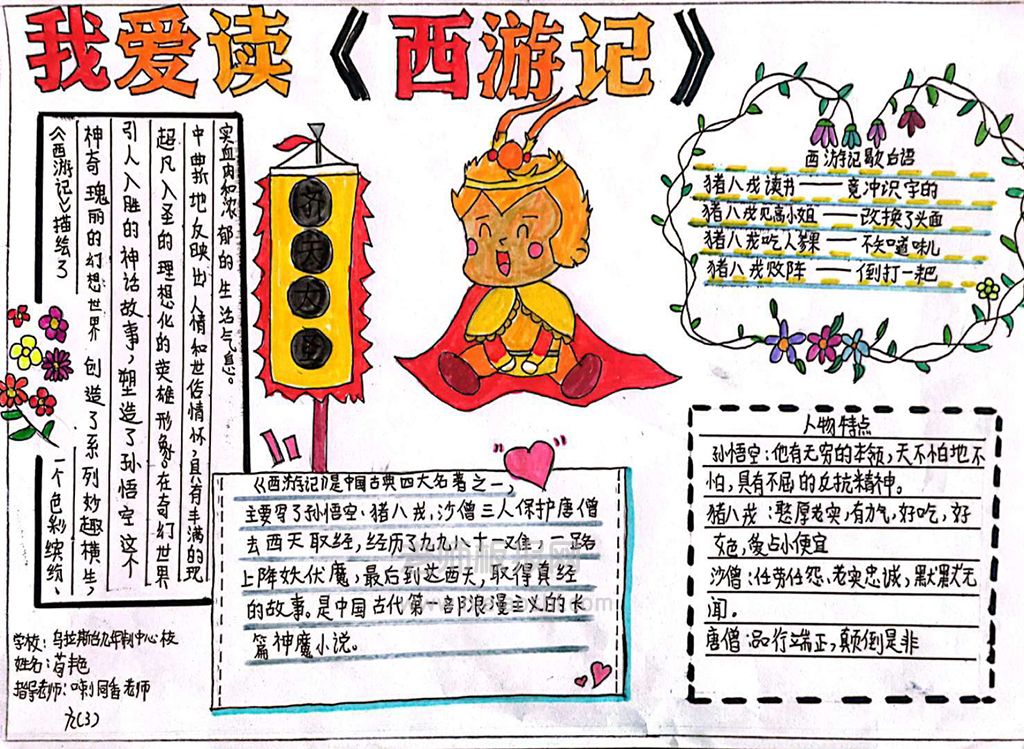 我爱读《西游记》
《西游记》描绘了一个色彩缤纷、
神奇瑰丽的幻想世界 创造了系列妙趣横生,
引人入胜的神话故事,塑造了孙悟空这个
超凡入圣的理想化的英雄形象。在奇幻世界
中曲折地反映出人情和世俗情怀,具有丰满的现
实血肉和浓郁的生活气息。
齐天大圣
西游记歇后语
猪八戒读书——竟冲识字的
猪八戒见高小姐——改换了头面
猪八戒吃人参果——不知道味儿
猪八戒败阵——倒打一耙
《西游记》是中国古典四大名著之一,
主要写了孙悟空·猪八戒,沙僧三人保护唐僧
去西天取经,经历了九九八十一难,一路
上降妖伏魔,最后到达西天,取得真经
的故事。是中国古代第一部浪漫主义的长
篇神魔小说。
人物特点
孙悟空:他有无穷的本领,天不怕地不
怕,具有不屈的反抗精神。
猪八戒:憨厚老实,有力气,好吃,好
女色,爱占小便宜
沙僧:任劳任怨、老实忠诚,默默无
闻。
唐僧:品行端正,颠倒是非
学校:乌拉斯台九年制中心校
姓名:
指导老师:老师
九(3)
老师板报网